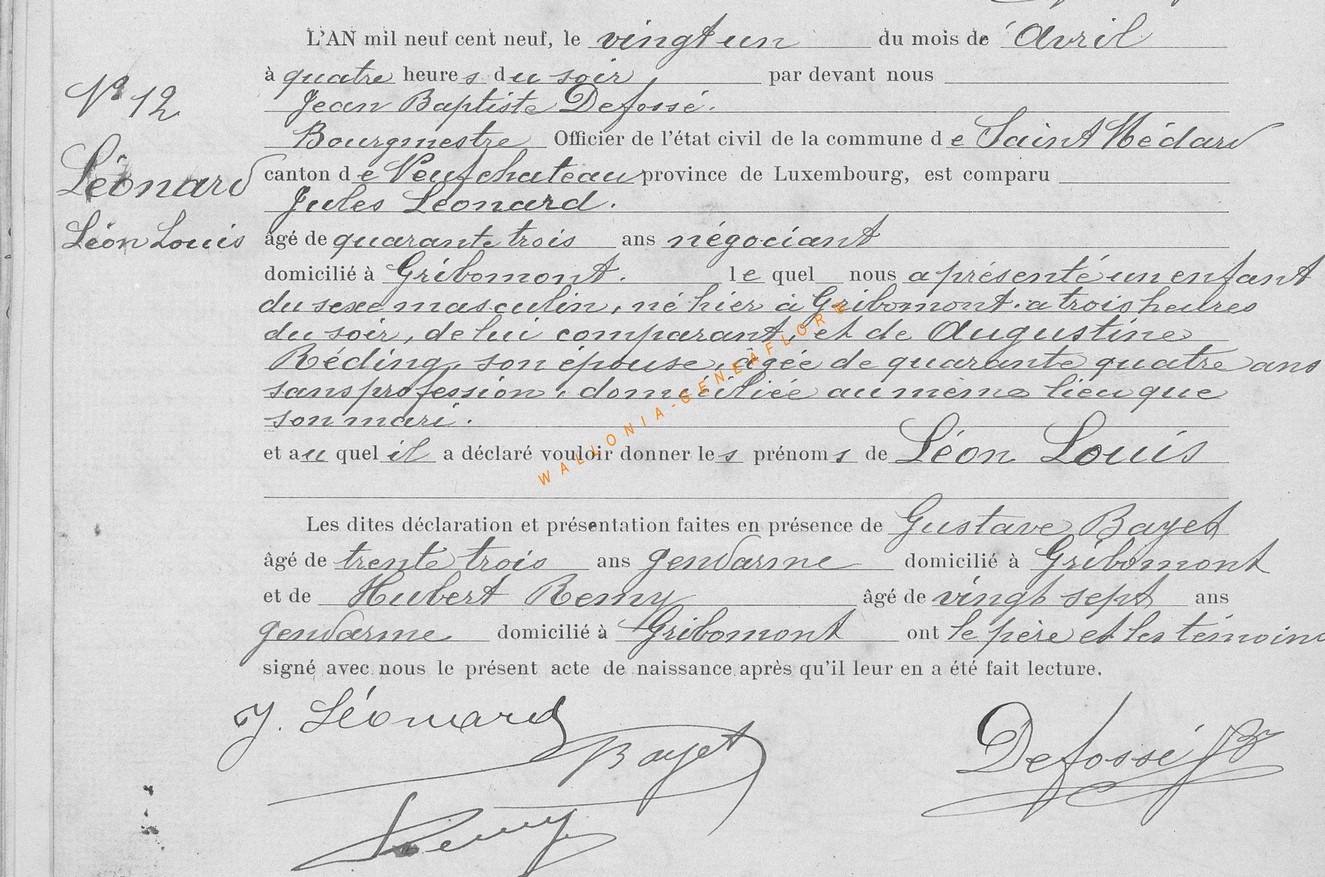 L'AN mil neuf cent neuf, le vingt un du mois de Avril
à quatre heures du soir, par devant nous
Jean Baptiste Defossé.
Bourgmestre Officier de l'état civil de la commune de Saint Médard
canton de Neufchateau province de Luxembourg, est comparu
Jules Léonard.
âgé de quarante trois ans négociant
domicilié à Gribomont. le quel nous a présenté un enfant
du sexe masculin, né hier à Gribomont. a trois heures
du soir, de lui comparant, et de Augustine
Réding, son épouse, âgée de quarante quatre ans
sans profession, domiciliée au même lieu que
son mari.
et au quel il a déclaré vouloir donner les prénoms de Léon Louis
Les dites déclaration et présentation faites en présence de Gustave Bayet
âgé de trente trois ans gendarme domicilié à Gribomont
et de Hubert Remy âgé de vingt sept ans
gendarme domicilié à Gribomont ont le père et les témoins
signé avec nous le présent acte de naissance après qu'il leur en a été fait lecture.
N° 12
Léonard
Léon Louis
J. Léonard
Bayet
Defossé JB
Remy
WALLONIA-GENEAFLORE